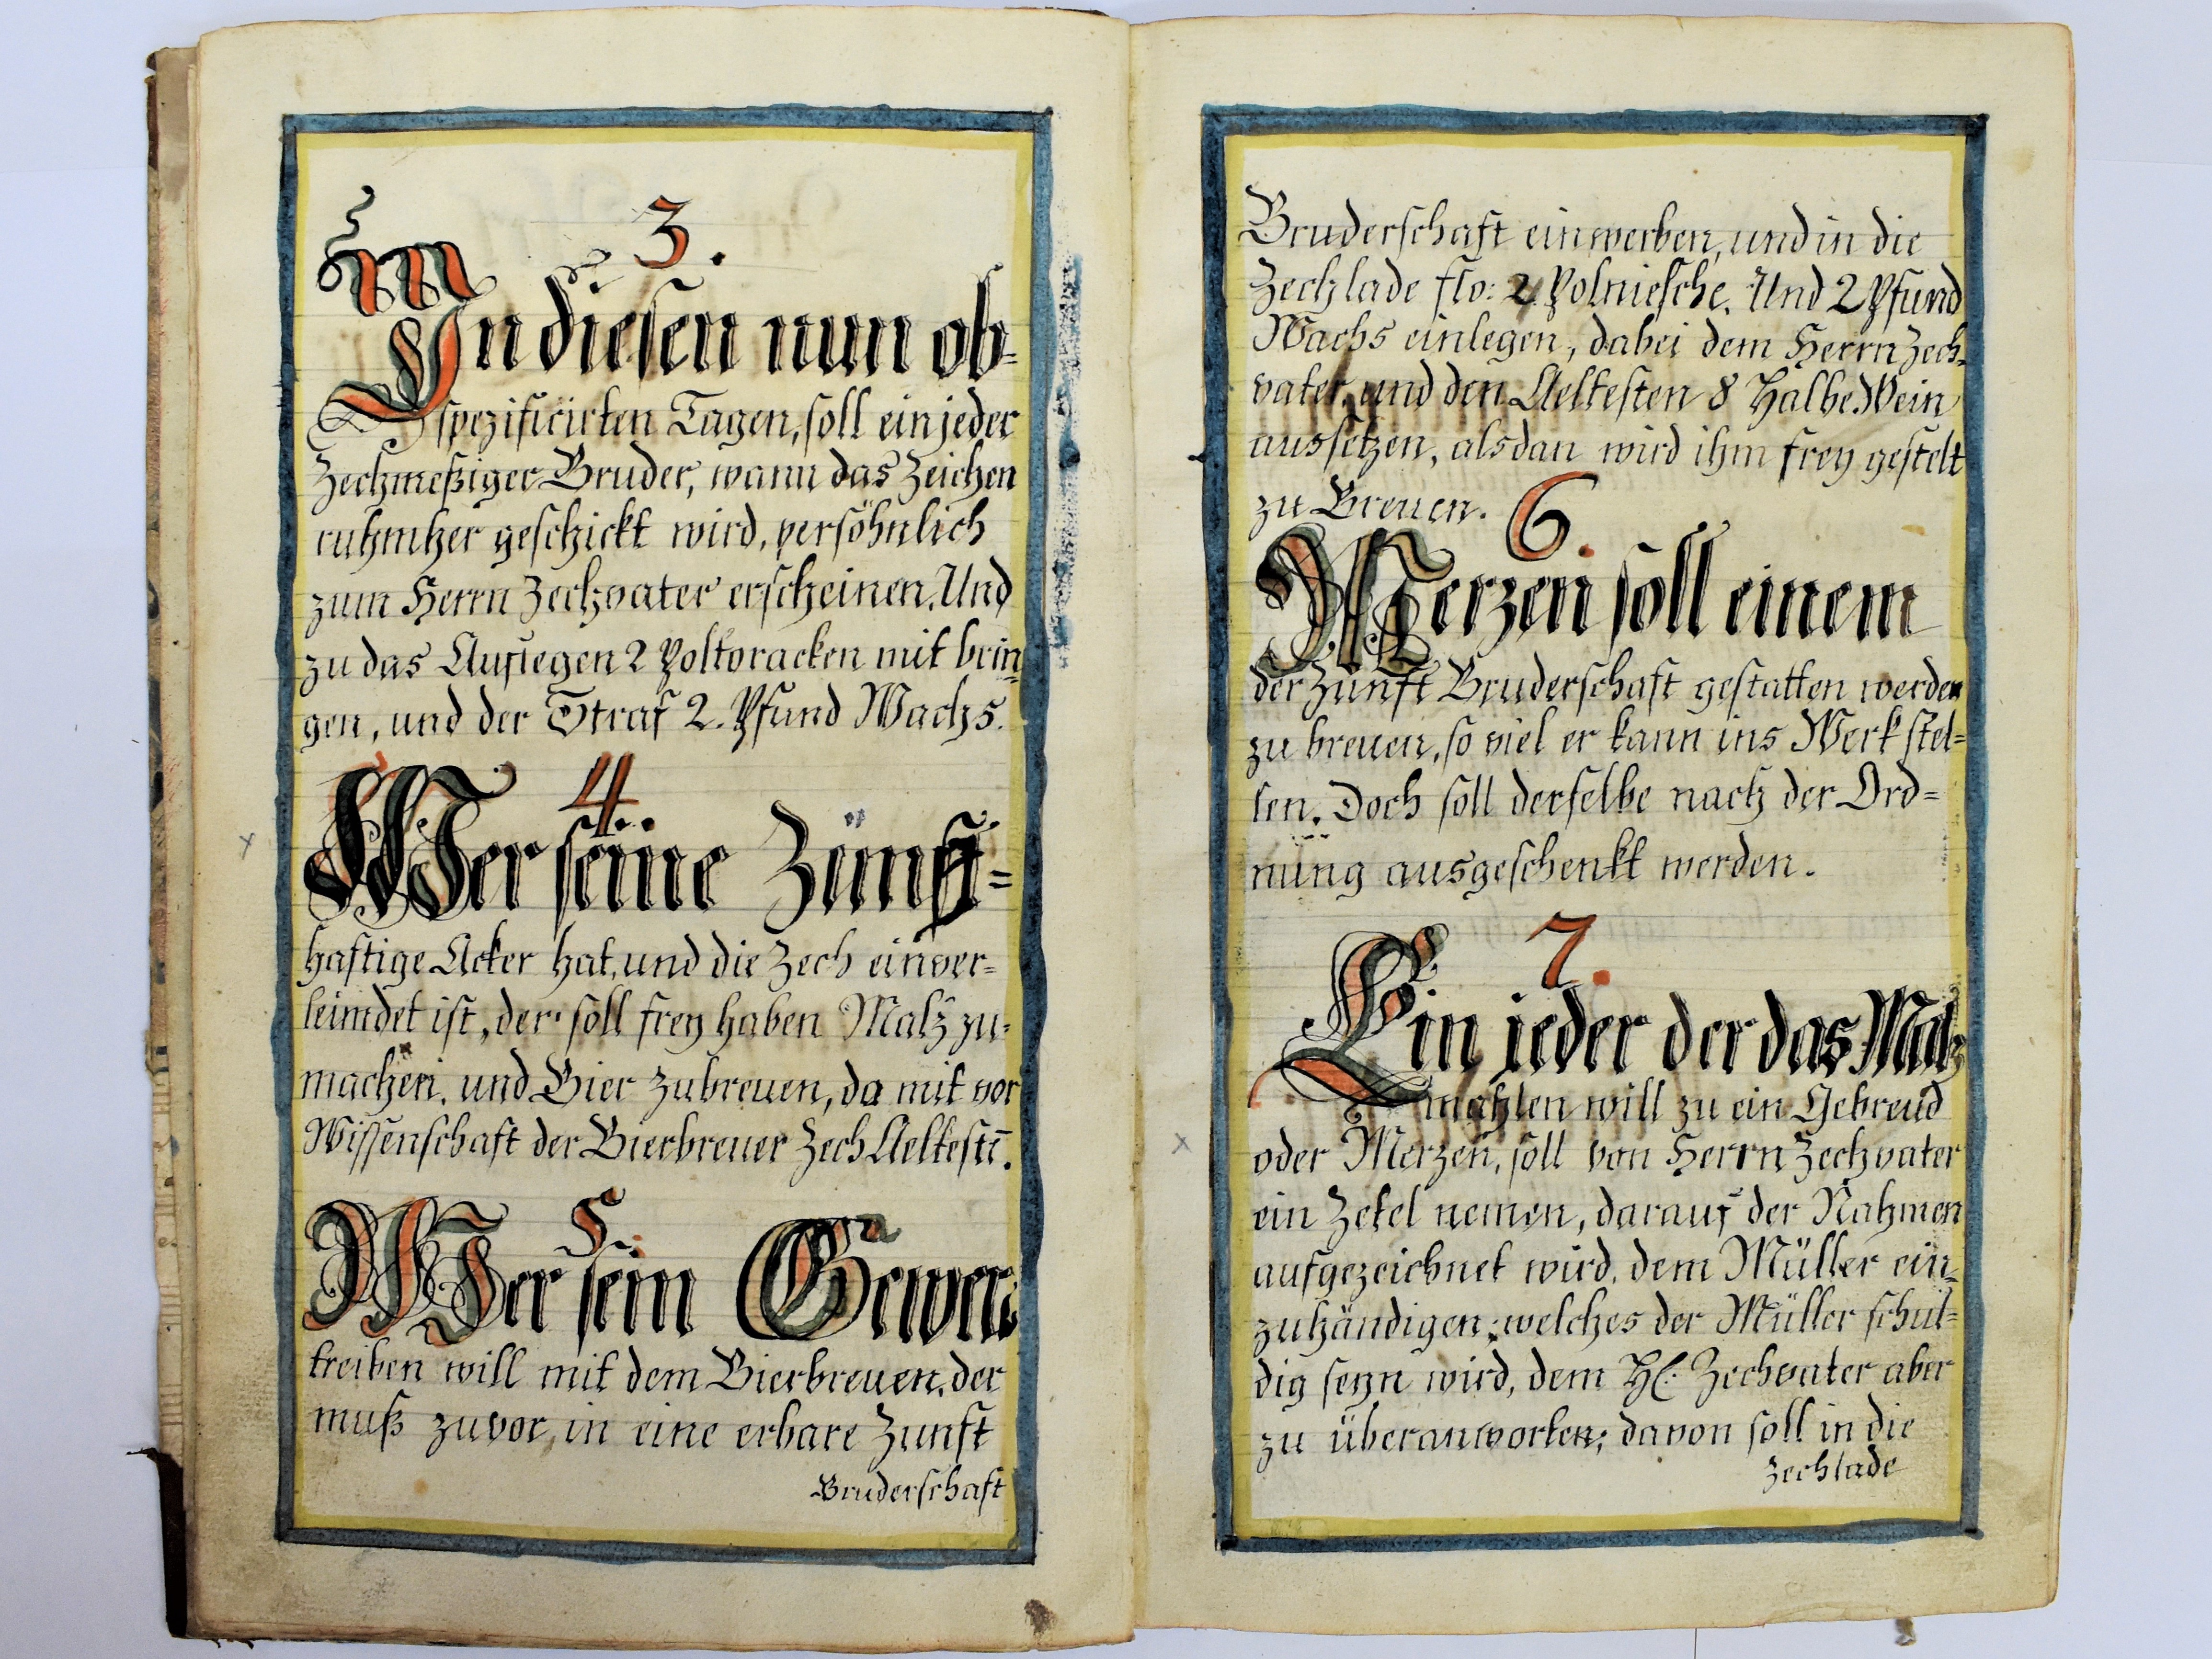 3.
In diesen nun ob-
spezificirten Tagen, soll ein jeder
Zechmeßiger Bruder, wann das Zeichen
ruhmher geschickt wird, persöhnlich
zum Herrn Zechvater erscheinen. Und
zu das Auflegen 2 Poltoracken mit brin=
gen, und der Straf 2. Pfund Wachs.
4.
Wer seine Zünft=
haftige Acker hat, und die Zech einver=
leimdet ist, der soll frey haben Malz zu-
machen, und Bier zubreuen, da mit vor
Wissenschaft der Bierbreuer Zech Aeltestē.
5.
Wer sein Gewerb
treiben will mit dem Bierbreuen, der
muß zuvor, in eine erbare Zunft
Bruderschaft
Bruderschaft einwerben, und in die
Zechlade flo: 2. Polniesche. Und 2 Pfund
Wachs einlegen, dabei dem Herrn Zech=
vater, und den Aeltesten 8 Halbe Wein
aussetzen, alsdan wird ihm frey gestelt
zu Breuen.
6.
Merzen soll einem
der Zunft Bruderschaft gestatten werden
zu breuen, so viel er kann ins Werk stel=
len. Doch soll derselbe nach der Ord=
nung ausgeschenkt werden.
7.
Ein jeder der das Malz
mahlen will zu ein Gebreud
oder Merzen, soll von Herrn Zechvater
ein Zetel nemen, darauf der Nahmen
aufgezeichnet wird, dem Müller ein=
zuhändigen; welches der Müller schul=
dig seyn wird, dem H. Zechvater aber
zu überanworten; davon soll in die
Zechlade